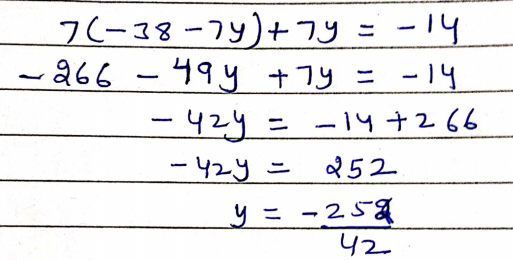 7(-38-7y)+7y = -14
-266 - 49y +7y = -14
-42y = -14+266
-42y = 252
y = -252
42